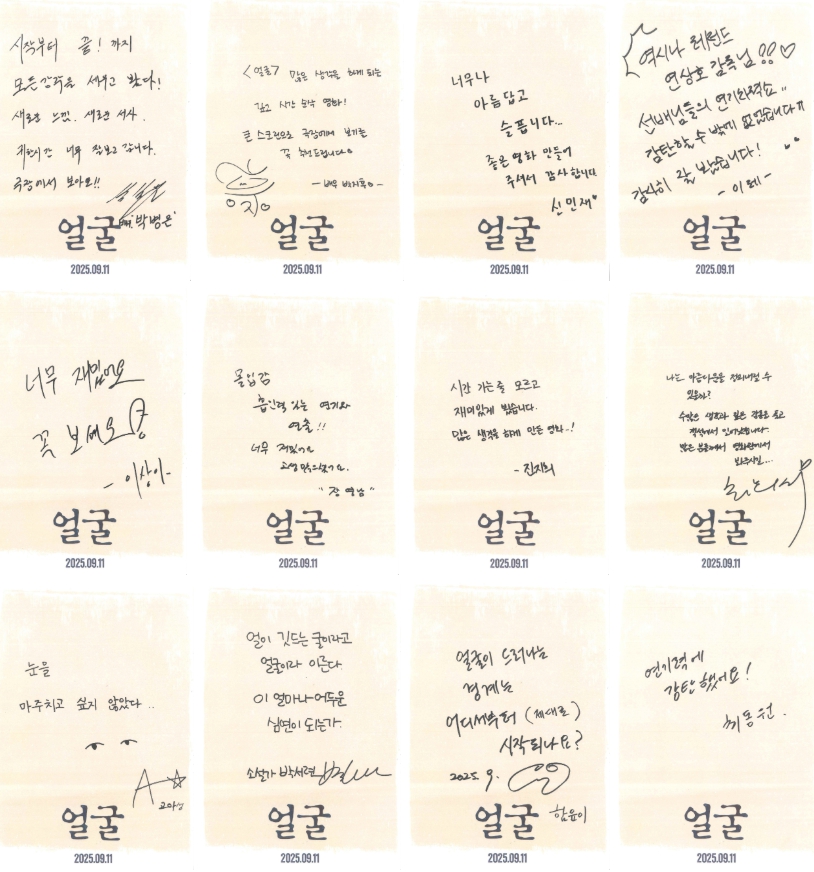 시작부터 끝! 까지
모든 감각을 세우고 봤다!
새로운 느낌. 새로운 서사.
귀한시간 너무 잘보고 갑니다.
극장에서 보아요!!
배우 '박병은'
얼굴
2025.09.11
<얼굴> 많은 생각을 하게 되는
깊고 시간 순삭 영화!
큰 스크린으로 극장에서 보기를
꼭 추천드립니다
얼굴
2025.09.11
너무나
아름답고
슬픕니다...
좋은 영화 만들어
주셔서 감사합니다
신민재
얼굴
2025.09.11
역시나 레전드
연상호 감독님!! ♡
선배님들의 연기력쇼..
감탄할 수 밖에 없었습니다ㅠ
감사히 잘 봤습니다!
- 이레 -
얼굴
2025.09.11
너무 재밌어요
꼭 보세요
- 이상이 -
얼굴
2025.09.11
몰입감
흡인력 있는 연기와
연출!!
너무 재밌어요
고생 많으셨어요.
"장영남"
얼굴
2025.09.11
시간 가는줄 모르고
재미있게 봤습니다.
많은 생각을 하게 만든 영화..!
- 진지희
얼굴
2025.09.11
나는 아름다움을 정의내릴 수
있을까?
수많은 생각과 깊은 감동을 품고
객석에서 일어났습니다.
많은 분들께서 영화관에서
봐주시길...
얼굴
2025.09.11
눈을
마주치고 싶지 않았다..
고아성
얼굴
2025.09.11
얼이 깃드는 굴이라고
얼굴이라 이른다
이 얼마나 어두운
심연이 되는가.
소설가 박서련
얼굴
2025.09.11
얼굴이 드러나는
경계는
어디서부터 (제대로)
시작되나요?
2025. 9.
함윤이
얼굴
2025.09.11
연기력에
감탄했어요!
최동원.
얼굴
2025.09.11